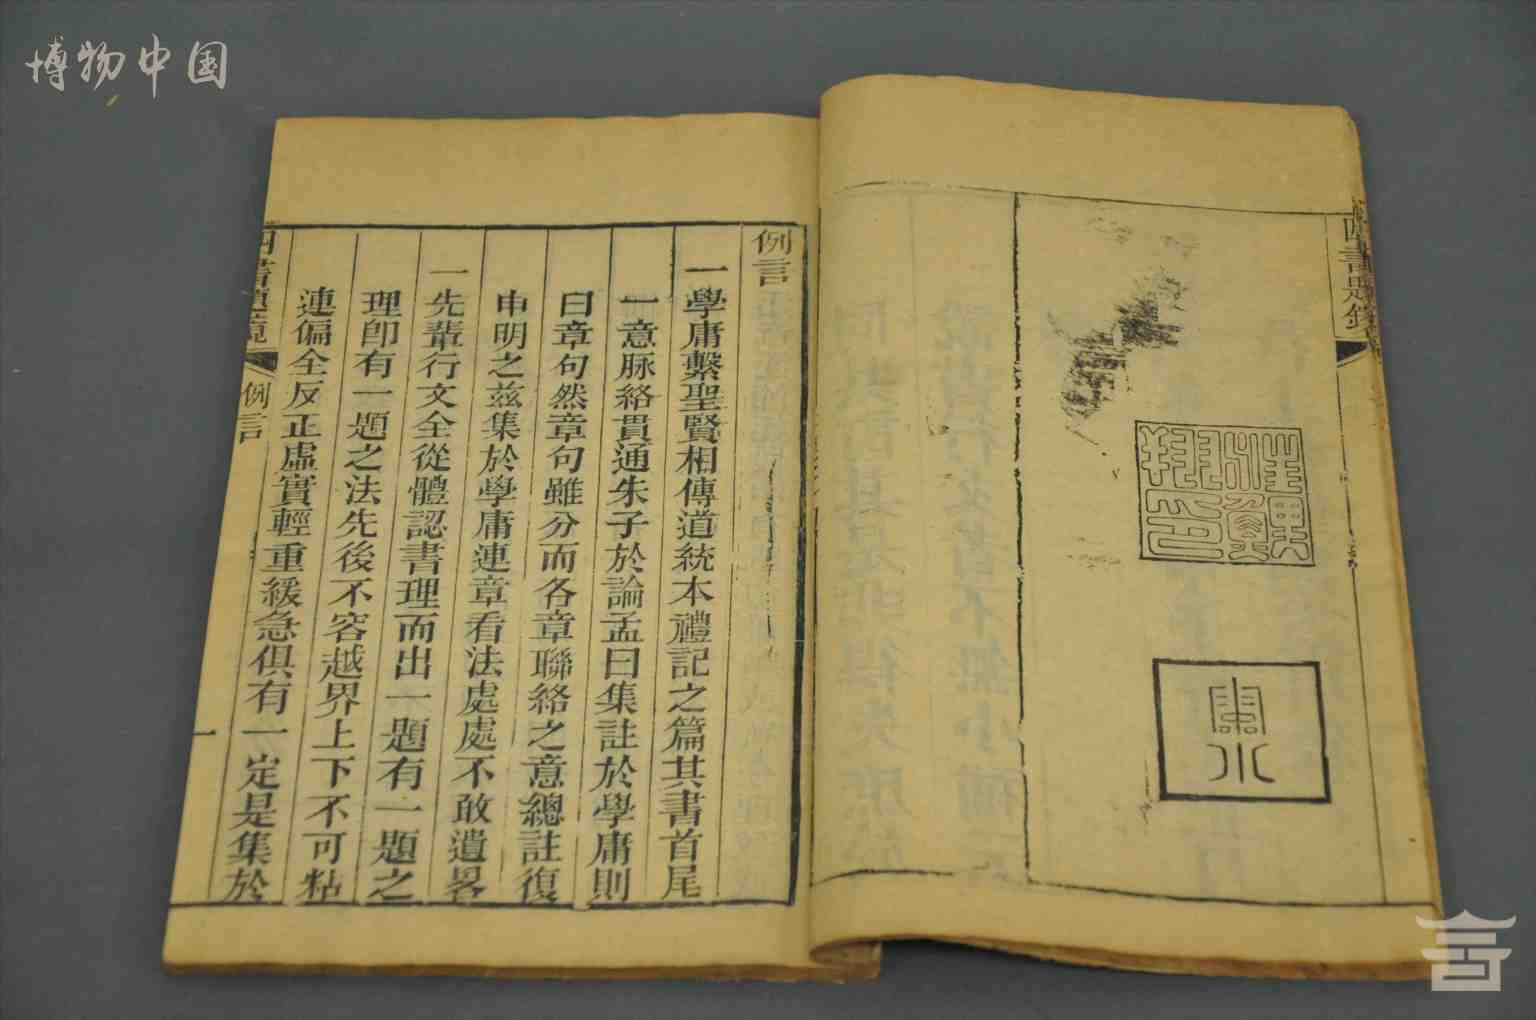 博物中国
四書題鏡
汪鯉翔印
例言
一學庸繫聖賢相傳道統本禮記之篇其書首尾
一意脉絡貫通朱子於論孟曰集註於學庸則
曰章句然章句雖分而各章聯絡之意總註復
申明之茲集於學庸連章看法處處不敢遺畧
一先輩行文全從體認書理而出一題有一題之
理卽有一題之法先後不容越界上下不可粘
連偏全反正虛實輕重緩急俱有一定是集於
四書題鏡
例言
一